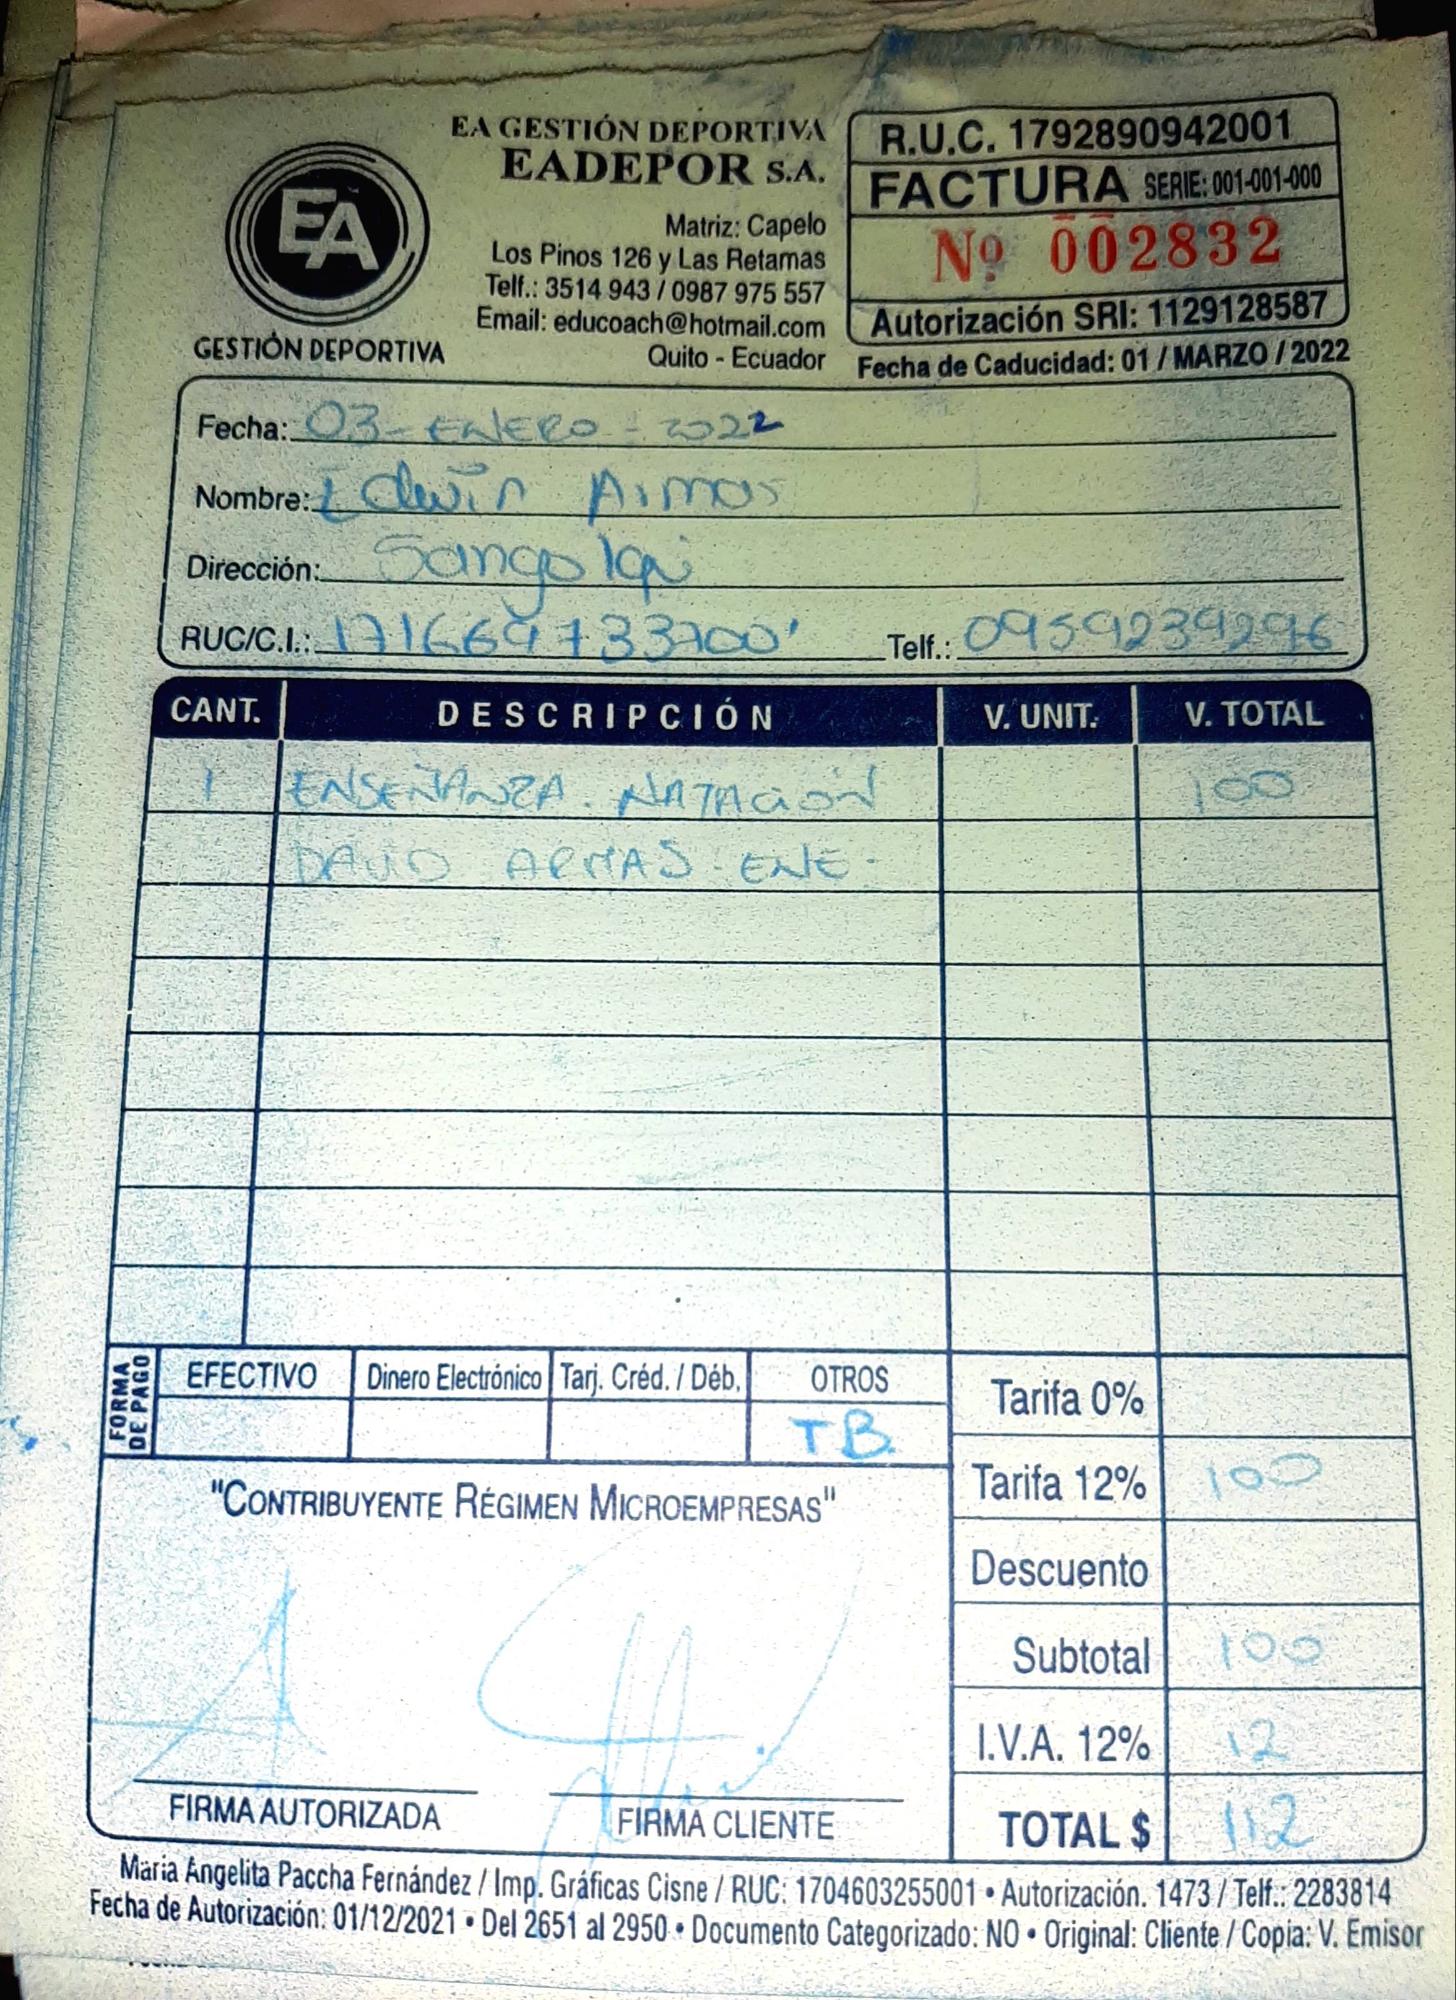 EA GESTIÓN DEPORTIVA
EADEPOR S.A.
EA
GESTIÓN DEPORTIVA
Matriz: Capelo
Los Pinos 126 y Las Retamas
Telf.: 3514 943 / 0987 975 557
Email: educoach@hotmail.com
Quito - Ecuador
R.U.C. 1792890942001
FACTURA SERIE: 001-001-000
Nº 002832
Autorización SRI: 1129128587
Fecha de Caducidad: 01 / MARZO / 2022
Fecha: 03 - ENERO - 2022
Nombre: Edwin Armas
Dirección: Sangolqui
RUC/C.I.: Telf.: 0959239296
CANT. DESCRIPCIÓN V. UNIT. V. TOTAL
1 ENSEÑANZA. NATACIÓN 100
DAVID ARMAS - ENE -
FORMA DE PAGO
EFECTIVO Dinero Electrónico Tarj. Créd. / Déb. OTROS
TB
Tarifa 0%
Tarifa 12% 100
Descuento
Subtotal 100
I.V.A. 12% 12
TOTAL $ 112
"CONTRIBUYENTE RÉGIMEN MICROEMPRESAS"
FIRMA AUTORIZADA FIRMA CLIENTE
Maria Angelita Paccha Fernández / Imp. Gráficas Cisne / RUC: 1704603255001 • Autorización. 1473 / Telf.: 2283814
Fecha de Autorización: 01/12/2021 • Del 2651 al 2950 • Documento Categorizado: NO • Original: Cliente / Copia: V. Emisor